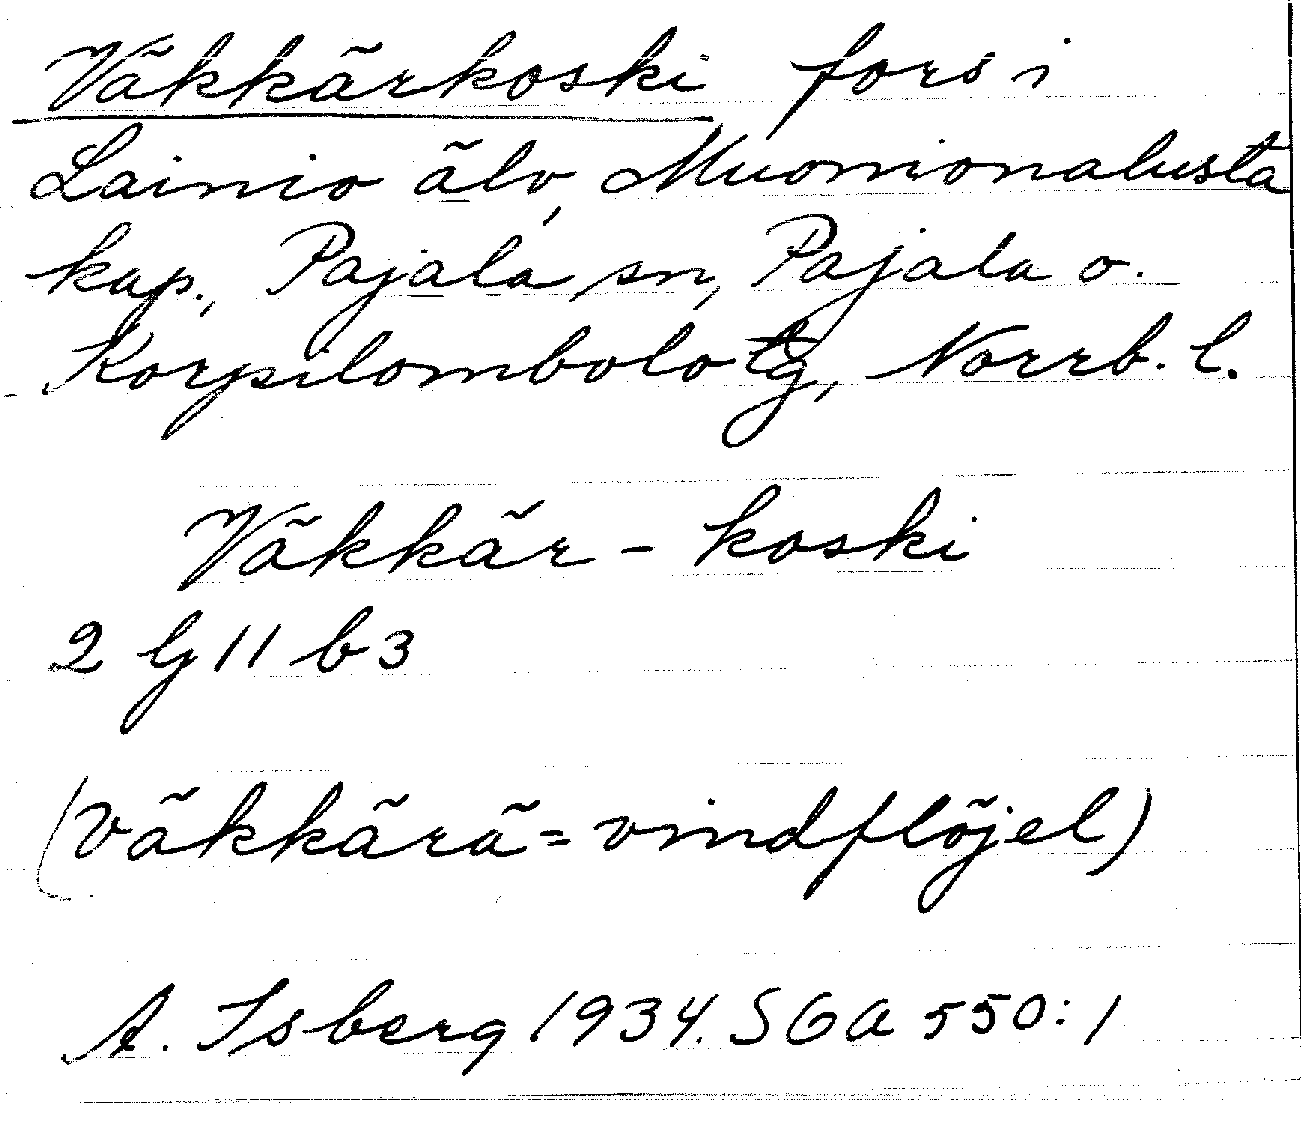 Väkkärkoski fors i
Lainio älv, Muonionalusta
kap., Pajala sn, Pajala o.
Korpilombolo tg, Norrb. l.
Väkkär - koski
2 G 11 b 3
(väkkärä = vindflöjel)
A. Isberg 1934. SGA 550:1